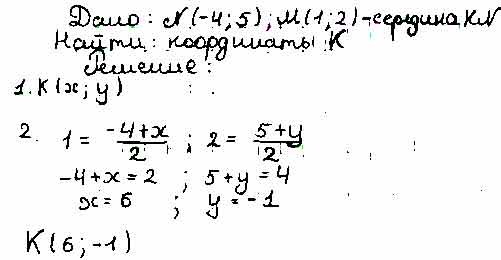 Дано: N(-4; 5); M(1; 2) - середина KN
Найти: координаты K
Решение:
1. K(x; y)
2. 1 = (-4+x)/2 ; 2 = (5+y)/2
-4+x = 2 ; 5+y = 4
x = 6 ; y = -1
K(6; -1)